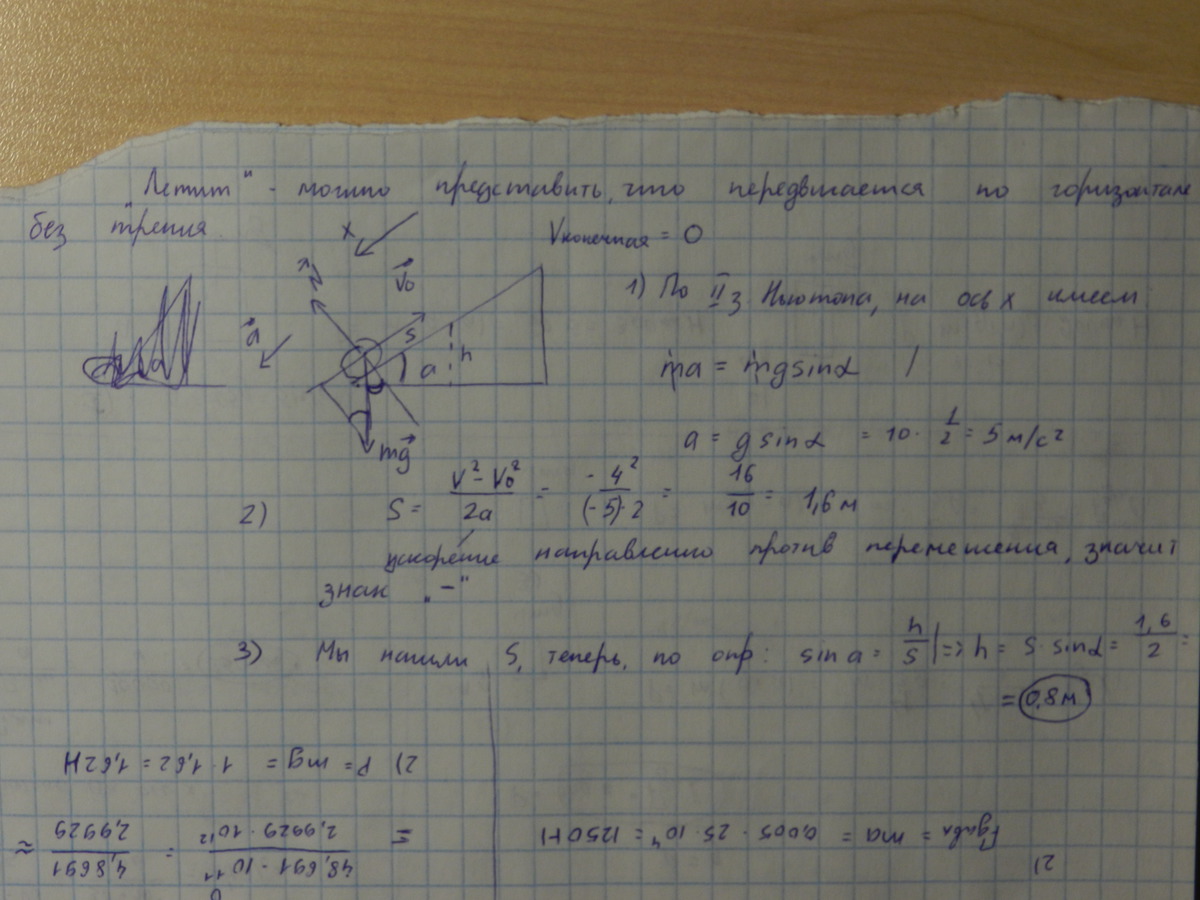 "Летит" - можно представить, что передвигается по горизонтале
без трения.
X
Vконечная = 0
N
V₀
1) По II з Ньютона, на ось x имеем
a
S
h
α
ma = mgsinα |
mg
a = g sinα = 10 · 1/2 = 5 м/с²
2) S = (V² - V₀²)/(2a) = (-4²)/((-5)·2) = 16/10 = 1,6 м
ускорение направленно против перемещения, значит
знак „-“
3) Мы нашли S, теперь, по опр: sin a = h/S | => h = S · sinα = 1,6/2 =
= 0,8м
2) P = mg = 1 · 1,62 = 1,62 Н
= (48,691 · 10¹¹)/(2,9929 · 10¹²) = 4,8691/2,9929 ≈
2)
Fдавл = ma = 0,005 · 25 · 10⁴ = 1250 Н